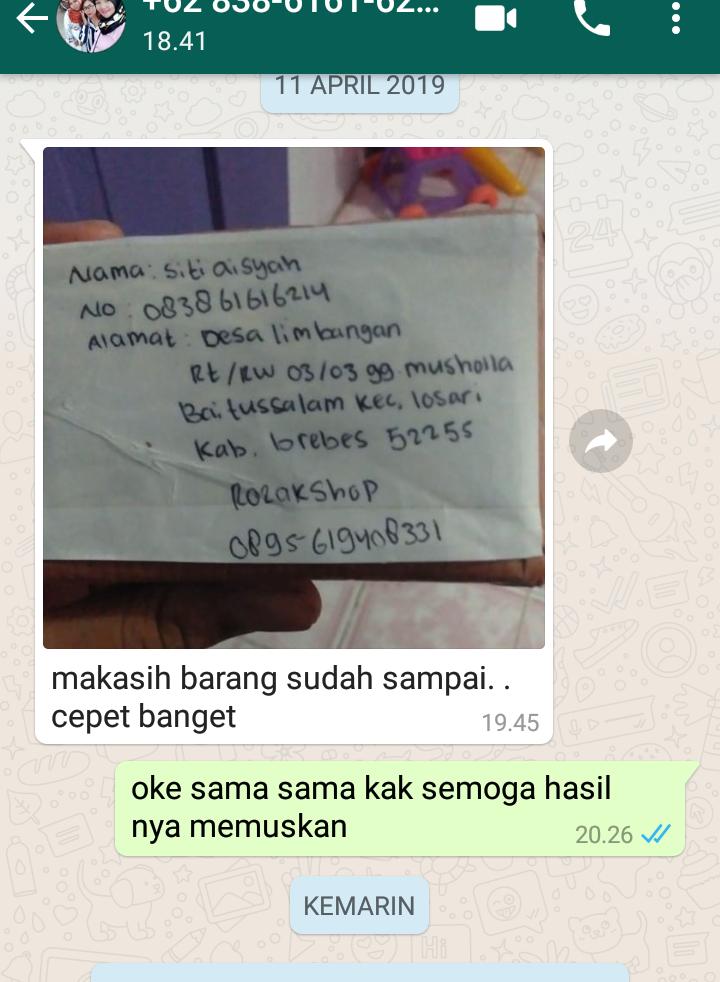 18.41
11 APRIL 2019
Nama: siti aisyah
No : 083861616214
Alamat : Desa limbangan
Rt/RW 03/03 gg. musholla
Baitussalam kec. losari
Kab. brebes 52255
ROZAKSHOP
0895-619408331
makasih barang sudah sampai. .
cepet banget
19.45
oke sama sama kak semoga hasil
nya memuskan
20.26
KEMARIN